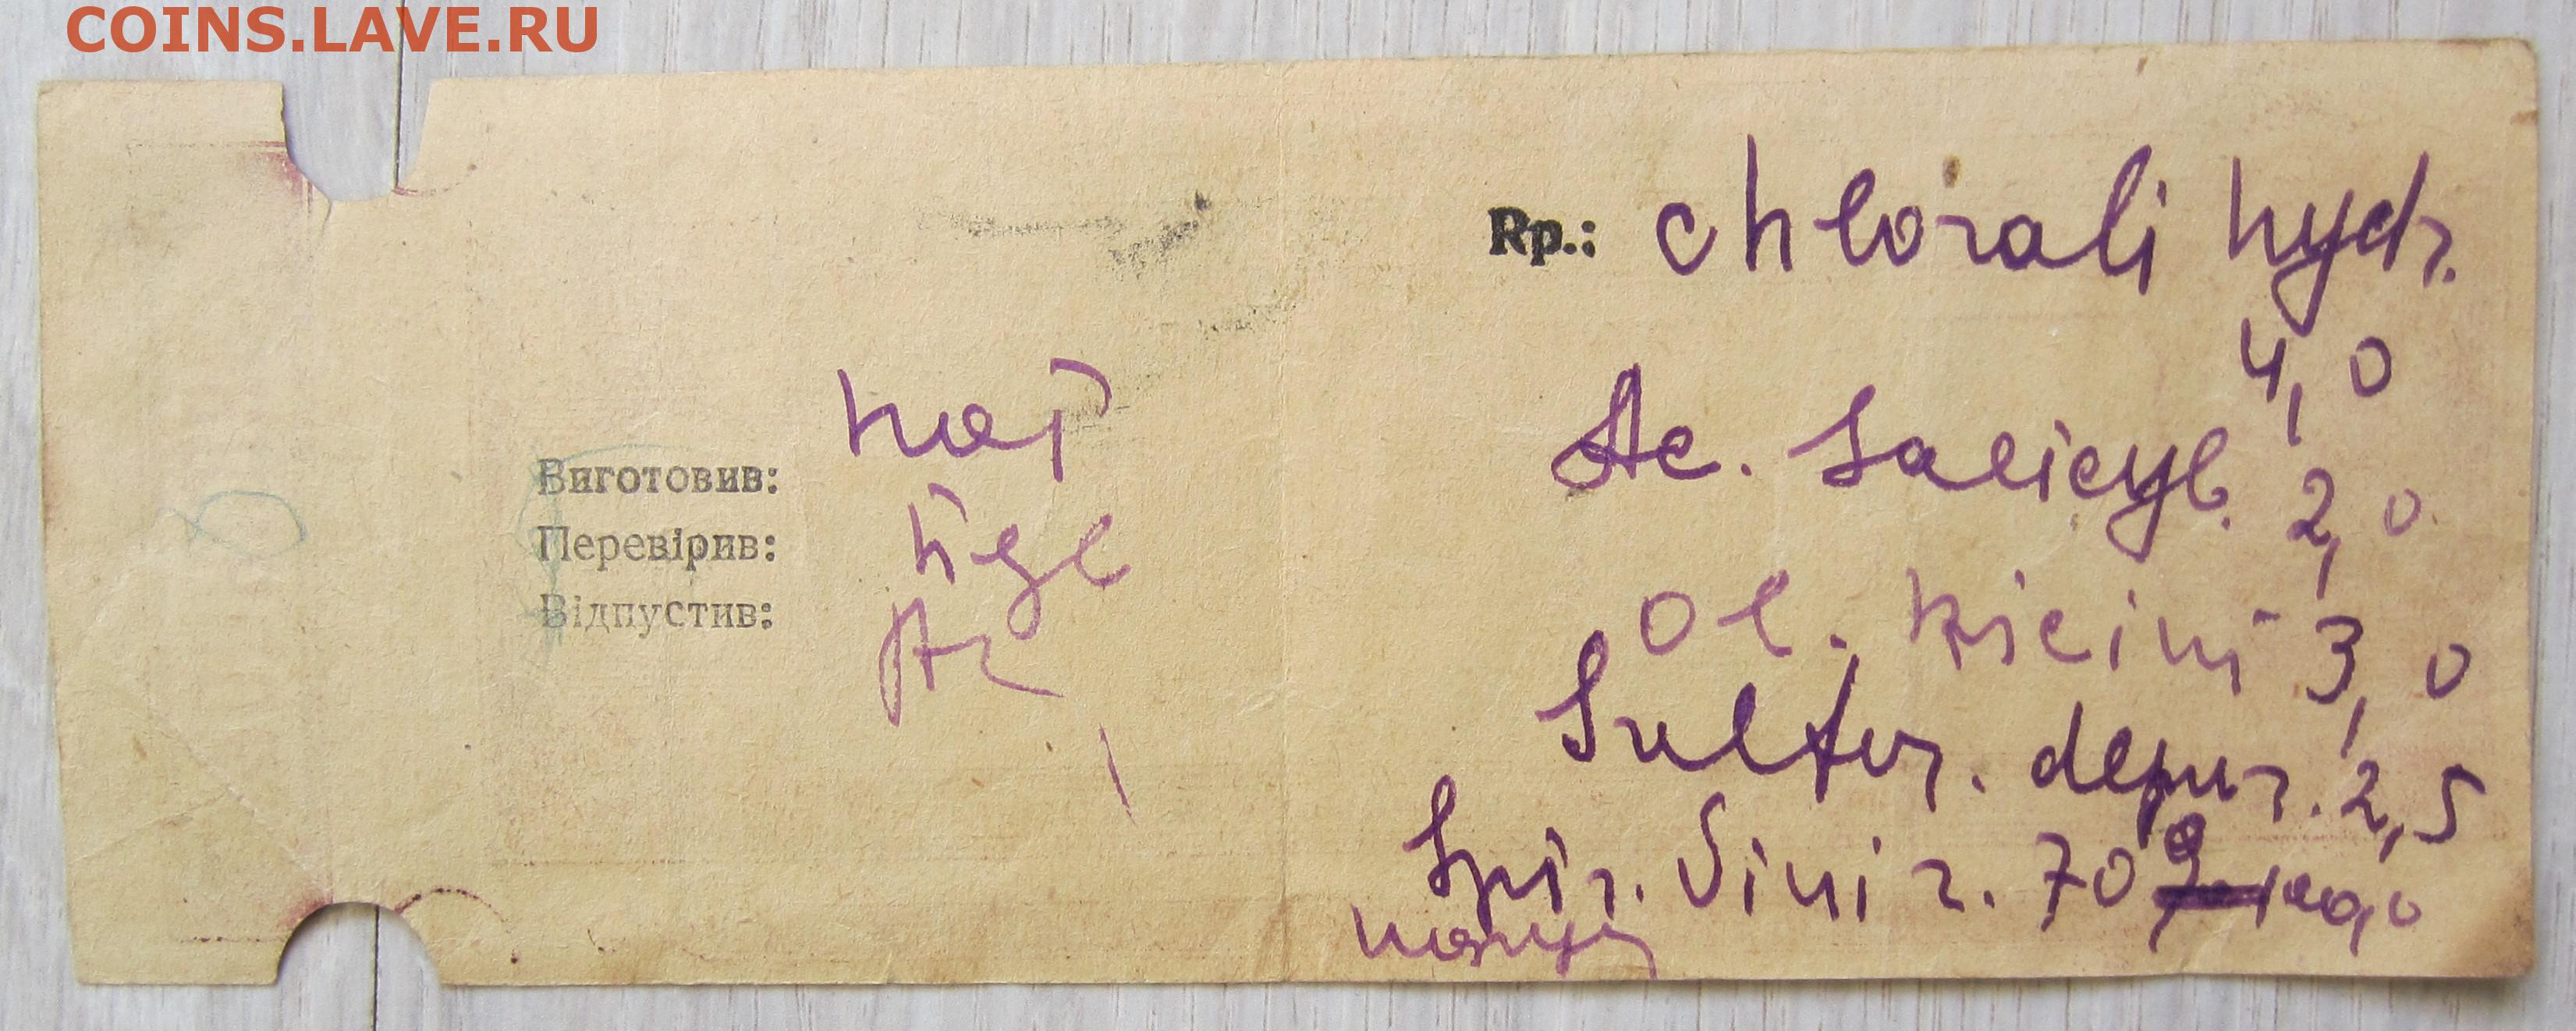 COINS.LAVE.RU
Rp.: Chlorali hydr.
4,0
Ac. Salicyl. 2,0
Ol. Ricini 3,0
Sulfur. depur. 2,5
Spir. Vini r. 70° 100,0
Виготовив:
Перевірив:
Відпустив: